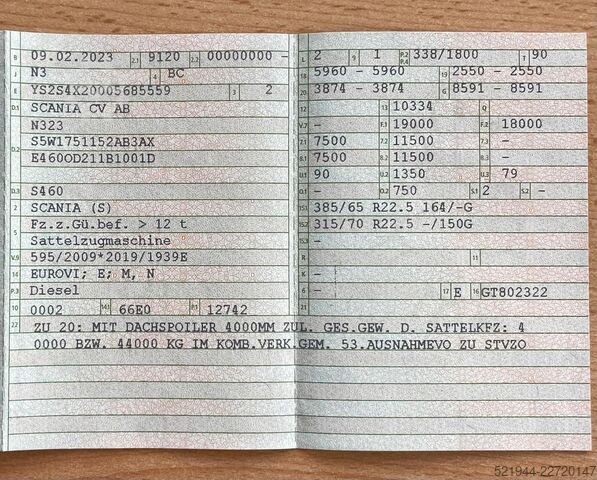 B 09.02.2023 2.1 9120 2.2 00000000 -
J N3 4 BC
E YS2S4X20005685559 3 2
D.1 SCANIA CV AB
N323
D.2 S5W1751152AB3AX
E460OD211B1001D
D.3 S460
2 SCANIA (S)
5 Fz.z.Gü.bef. > 12 t
Sattelzugmaschine
V.9 595/2009*2019/1939E
14 EUROVI; E; M, N
P.3 Diesel
10 0002 14.1 66E0 P.1 12742
L 2 9 1 P.2 P.4 338/1800 T 90
18 5960 - 5960 19 2550 - 2550
20 3874 - 3874 G 8591 - 8591
12 13 10334 Q
V.7 - F.1 19000 F.2 18000
7.1 7500 7.2 11500 7.3 -
8.1 7500 8.2 11500 8.3 -
U.1 90 U.2 1350 U.3 79
O.1 - O.2 750 S.1 2 S.2 -
15.1 385/65 R22.5 164/-G
15.2 315/70 R22.5 -/150G
15.3 -
R 11
K -
6 - 17 E 16 GT802322
21
22 ZU 20: MIT DACHSPOILER 4000MM ZUL. GES.GEW. D. SATTELKFZ: 4
0000 BZW. 44000 KG IM KOMB.VERK.GEM. 53.AUSNAHMEVO ZU STVZO
521944-22720147